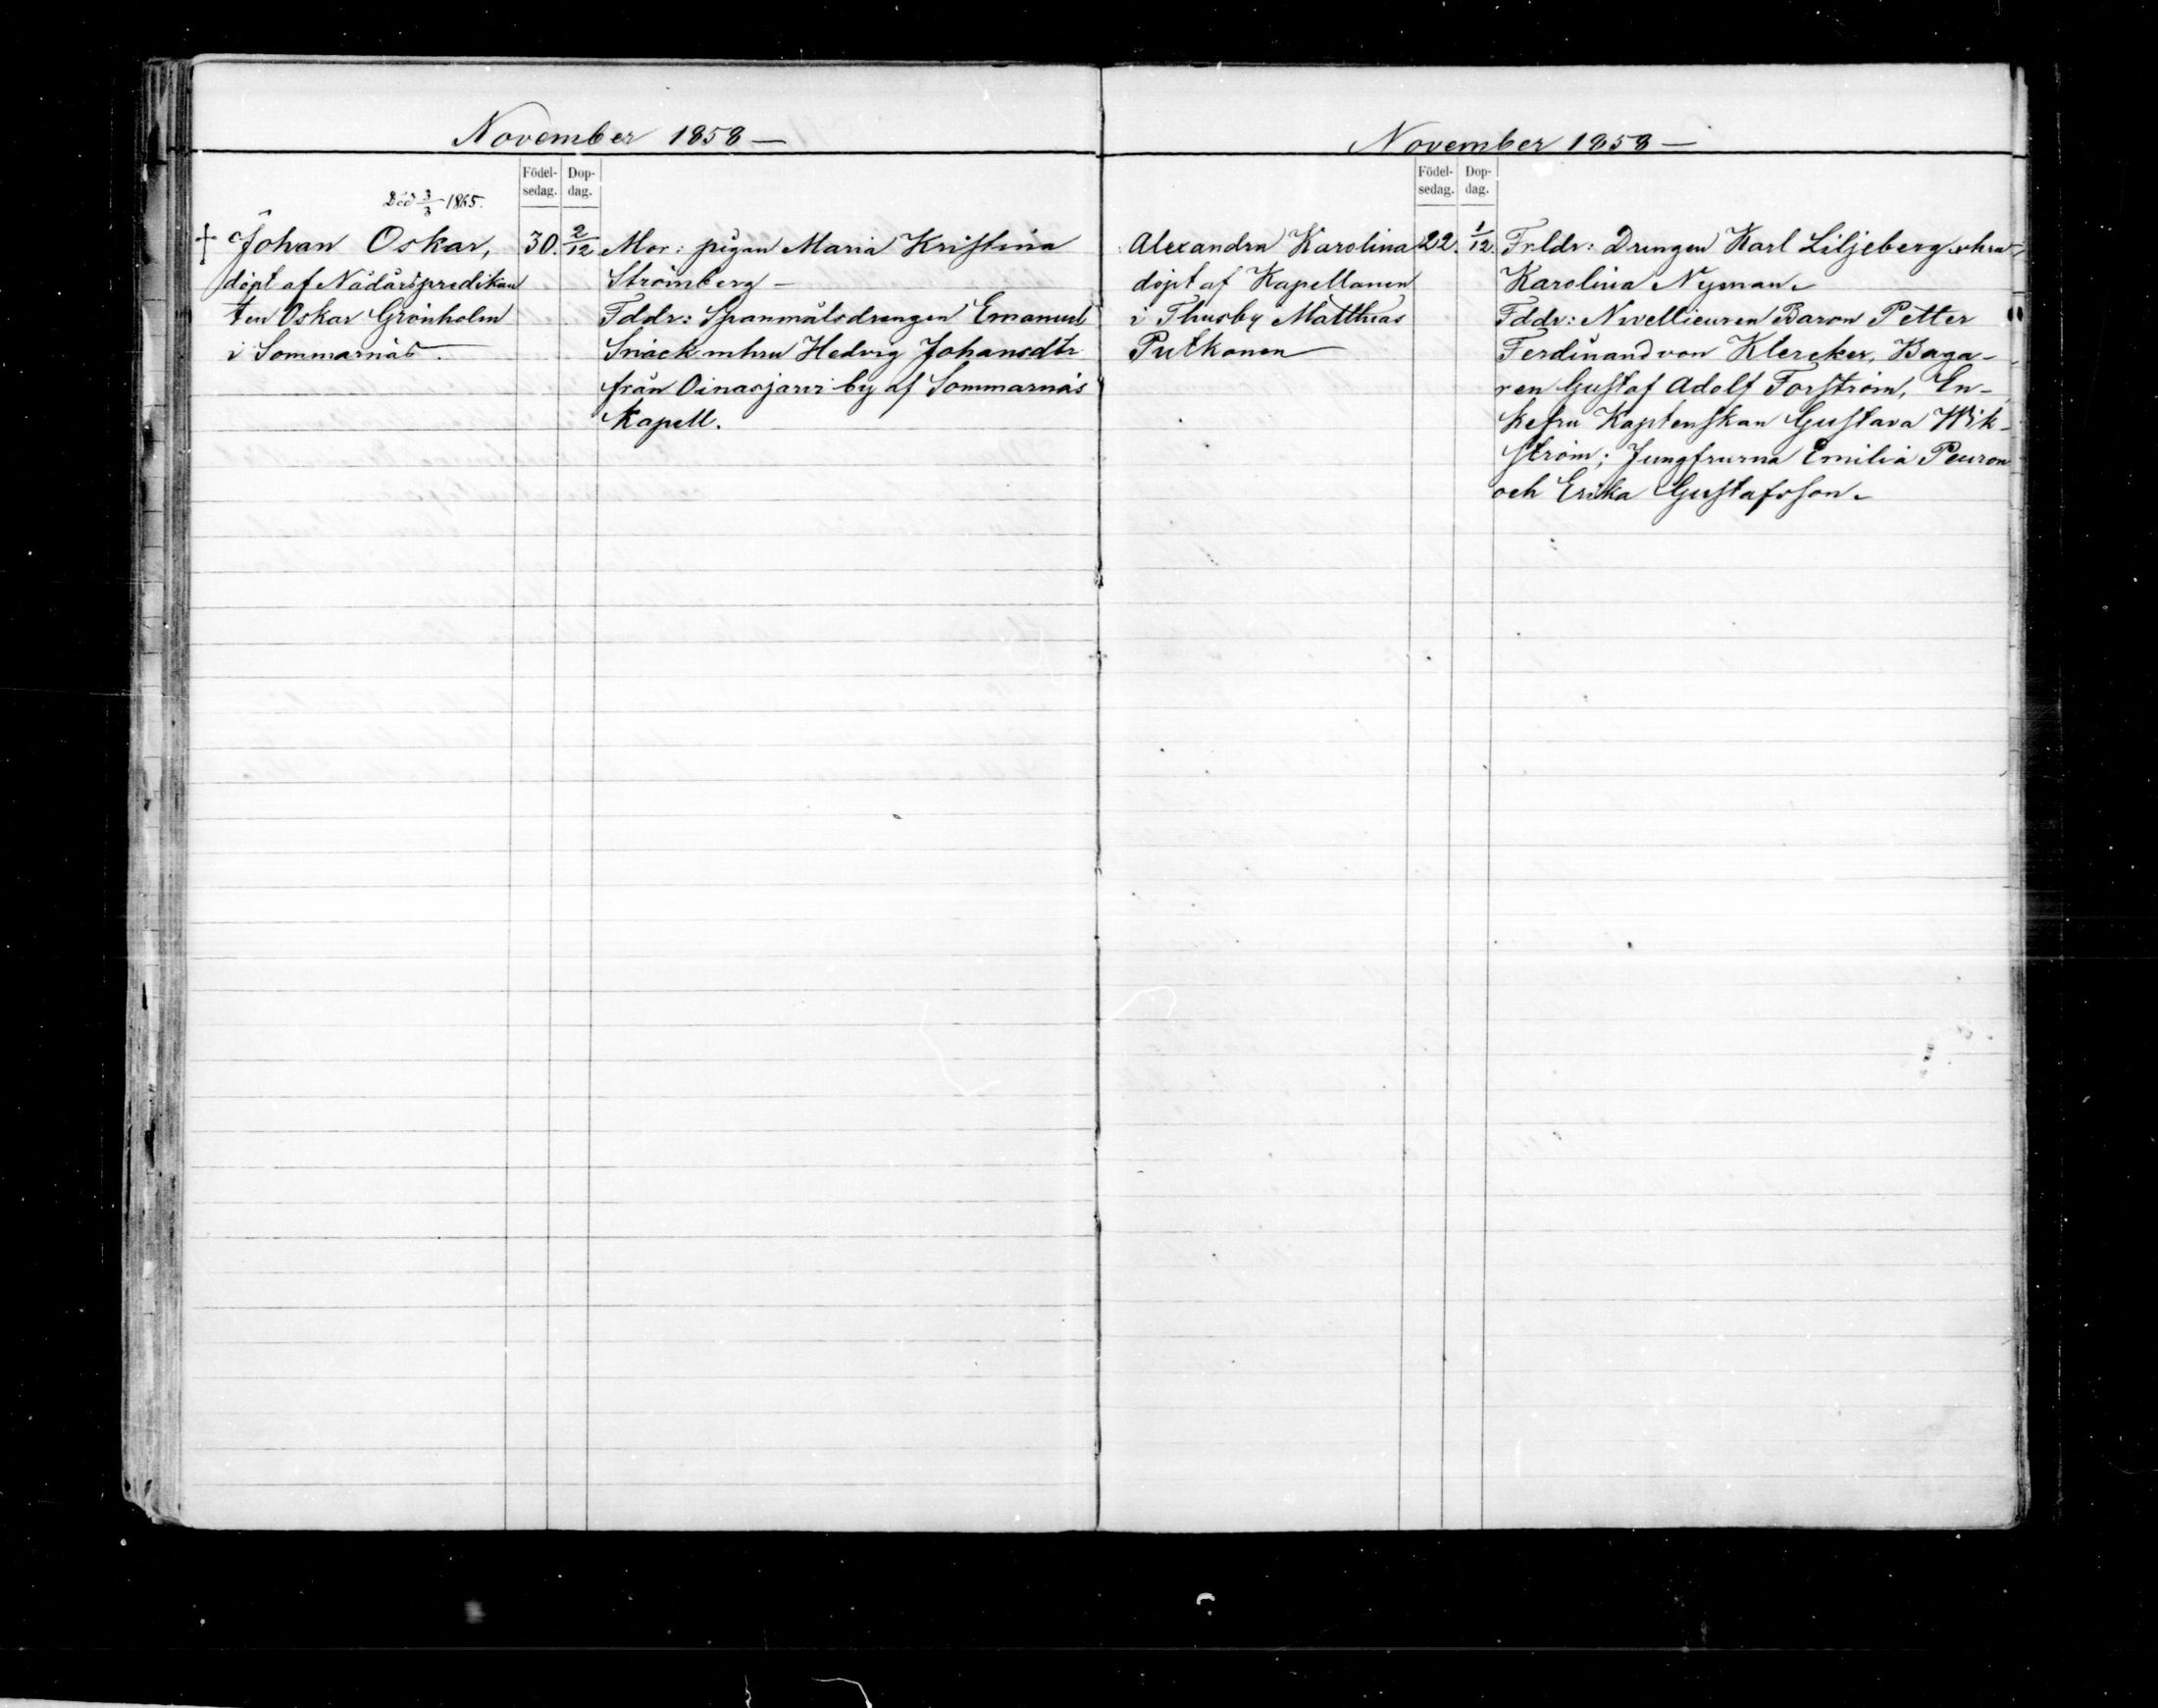 November 1858 —
Födel-
sedag.
Dop-
dag.
Död 3/3 1865.
† Johan Oskar,
döpt af Nådårspredikan
ten Oskar Grönholm
i Sommarnäs.
30.
2/12
Mor: pigan Maria Kristina
Strömberg —
Fddr: Spanmålsdrengen Emanuel
Snäck mhru Hedvig Johansdtr
från Oinasjärvi by af Sommarnäs
Kapell.
November 1858 —
Födel-
sedag.
Dop-
dag.
Alexandra Karolina
döpt af Kapellanen
i Thusby Matthias
Putkonen
22.
1/12.
Frldr: Drengen Karl Liljeberg
Karolina Nyman.
Fddr: Nivellieuren Baron Petter
Ferdinand von Klercker, Baga-
ren Gustaf Adolf Forström, En-
kefru Kaptenskan Gustava Wik-
ström; Jungfrurna Emilia Peuron
och Erika Gustafsson.